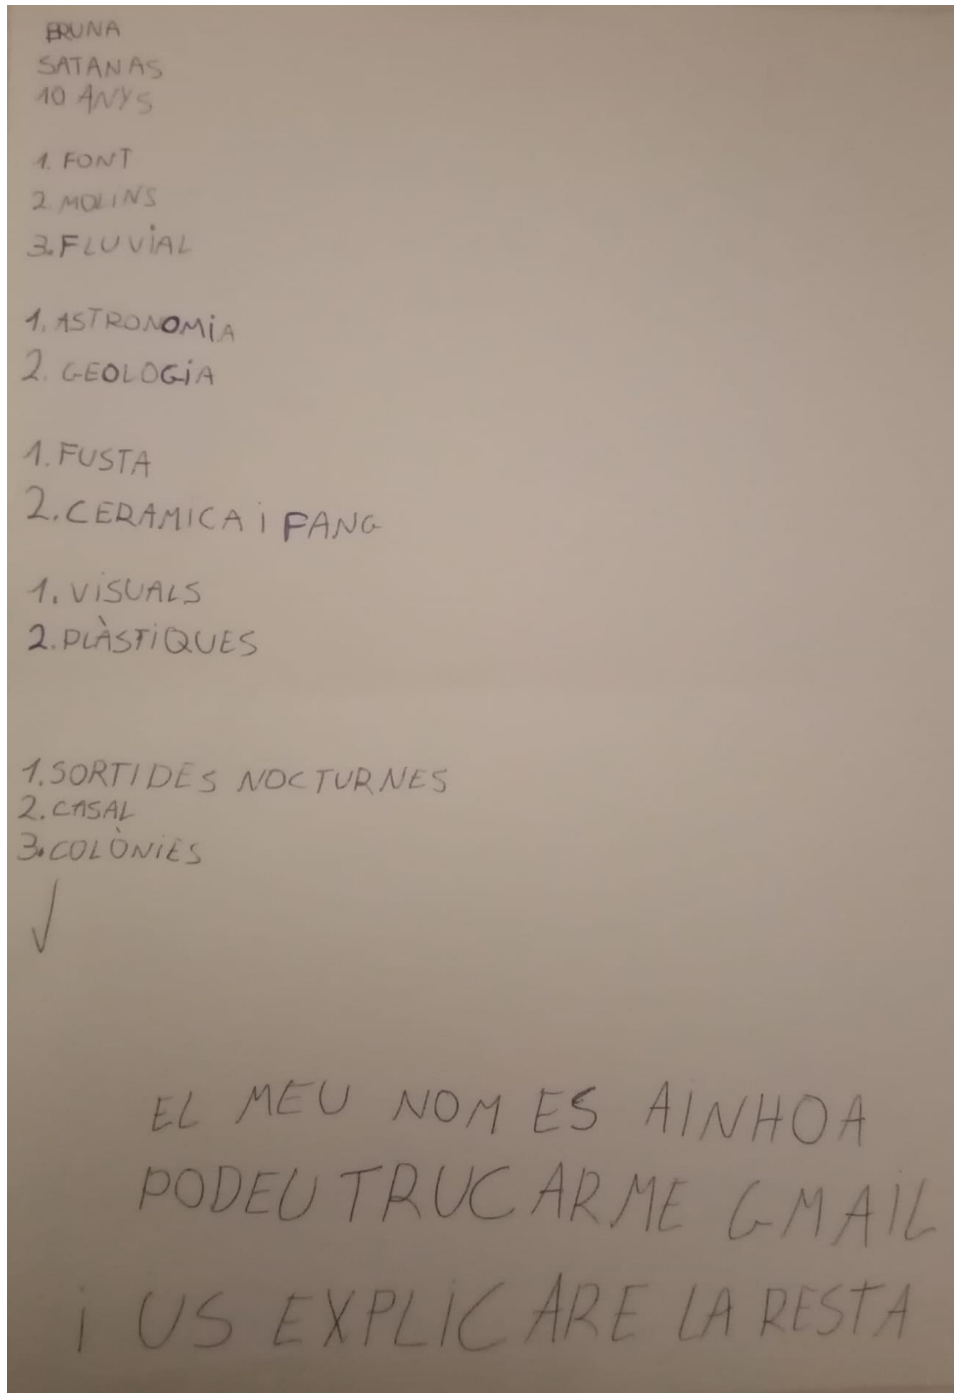 BRUNA
SATANAS
10 ANYS
1. FONT
2 MOLINS
3. FLUVIAL
1. ASTRONOMIA
2. GEOLOGIA
1. FUSTA
2. CERAMICA i FANG
1. VISUALS
2. PLÀSTIQUES
1. SORTIDES NOCTURNES
2. CASAL
3. COLÒNIES
EL MEU NOM ES AINHOA
PODEU TRUCARME GMAIL
i US EXPLICARE LA RESTA